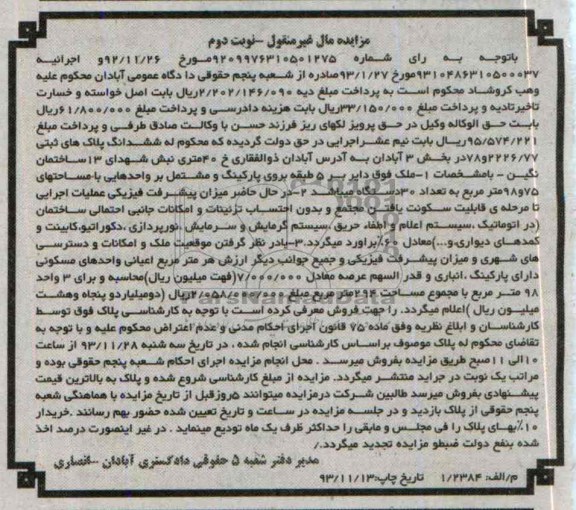 مزایده مال غیرمنقول -نوبت دوم
باتوجه به رای شماره ۹۲۰۹۹۷۶۳۱۰۵۰۱۲۷۵مورخ ۹۲/۱۱/۲۶و اجرائیه
۹۳۱۰۴۸۶۳۱۰۵۰۰۰۳۷مورخ ۹۳/۱/۲۷صادره از شعبه پنجم حقوقی دا دگاه عمومی آبادان محکوم علیه
وهب کروشاد محکوم است به پرداخت مبلغ دیه ۲/۲۰۲/۱۴۶/۰۹۰ریال بابت اصل خواسته و خسارت
تاخیرتادیه و پرداخت مبلغ ۳۳/۱۵۰/۰۰۰ریال بابت هزینه دادرسی و پرداخت مبلغ ۶۱/۸۰۰/۰۰۰ریال
بابت حق الوکاله وکیل در حق پرویز لکهای ریز فرزند حسن با وکالت صادق طرفی و پرداخت مبلغ
۹۵/۵۷۴/۲۲۱ریال بابت نیم عشراجرایی در حق دولت گردیده که محکوم له ششدانگ پلاک های ثبتی
۲۲۲۶/۷۷و۷۸در بخش ۳ آبادان به آدرس آبادان ذوالفقاری خ ۴۰متری نبش شهدای ۱۳ساختمان
نگین - بامشخصات ۱-ملک فوق دایر بر ۵ طبقه بروی پارکینگ و مشتمل بر واحدهایی با مساحتهای
۷۵و۹۸متر مربع به تعداد ۳۰دستگاه میباشد ۲-در حال حاضر میزان پیشرفت فیزیکی عملیات اجرایی
تا مرحله ی قابلیت سکونت یافتن مجتمع و بدون احتساب تزئینات و امکانات جانبی احتمالی ساختمان
(در اتوماتیک ،سیستم اعلام و اطفاء حریق ،سیستم گرمایش و سرمایش ،نورپردازی ،دکوراتیو،کابینت و
کمدهای دیواری،و...)معادل ۶۰٪براورد میگردد.۳-بادر نظر گرفتن موقعیت ملک و امکانات و دسترسی
های شهری و میزان پیشرفت فیزیکی و جمیع جوانب دیگر ارزش هر متر مربع اعیانی واحدهای مسکونی
دارای پارکینگ ،انباری و قدر السهم عرصه معادل ۷/۰۰۰/۰۰۰(هفت میلیون ریال)محاسبه و برای ۳ واحد
۹۸ متر مربع با مجموع مساحت ۲۹۴متر مربع مبلغ ۲/۰۵۸/۰۰۰/۰۰۰ریال (دومیلیاردو پنجاه وهشت
میلیون ریال )اعلام میگردد. را جهت فروش معرفی کرده است با توجه به کارشناسی پلاک فوق توسط
کارشناسان و ابلاغ نظریه وفق ماده ۷۵ قانون اجرای احکام مدنی و عدم اعتراض محکوم علیه و با توجه به
تقاضای محکوم له پلاک موصوف براساس کارشناسی انجام شده ، در تاریخ سه شنبه ۹۳/۱۱/۲۸ از ساعت
۱۰الی ۱۱صبح طریق مزایده بفروش میرسد . محل انجام مزایده اجرای احکام شعبه پنجم حقوقی بوده و
مراتب یک نوبت در جراید منتشر میگردد. مزایده از مبلغ کارشناسی شروع شده و پلاک به بالاترین قیمت
پیشنهادی بفروش میرسد طالبین شرکت درمزایده میتوانند ۵روزقبل از تاریخ مزایده با هماهنگی شعبه
پنجم حقوقی از پلاک بازدید و در جلسه مزایده در ساعت و تاریخ تعیین شده حضور بهم رسانند .خریدار
۱۰٪بهای پلاک را فی مجلس و مابقی را حداکثر ظرف یک ماه تودیع مینماید . در غیر اینصورت درصد اخذ
شده بنفع دولت ضبطو مزایده تجدید میگردد./
مدیر دفتر شعبه ۵ حقوقی دادگستری آبادان -انصاری
م/الف: ۱/۲۳۸۴ تاریخ چاپ:۹۳/۱۱/۱۳